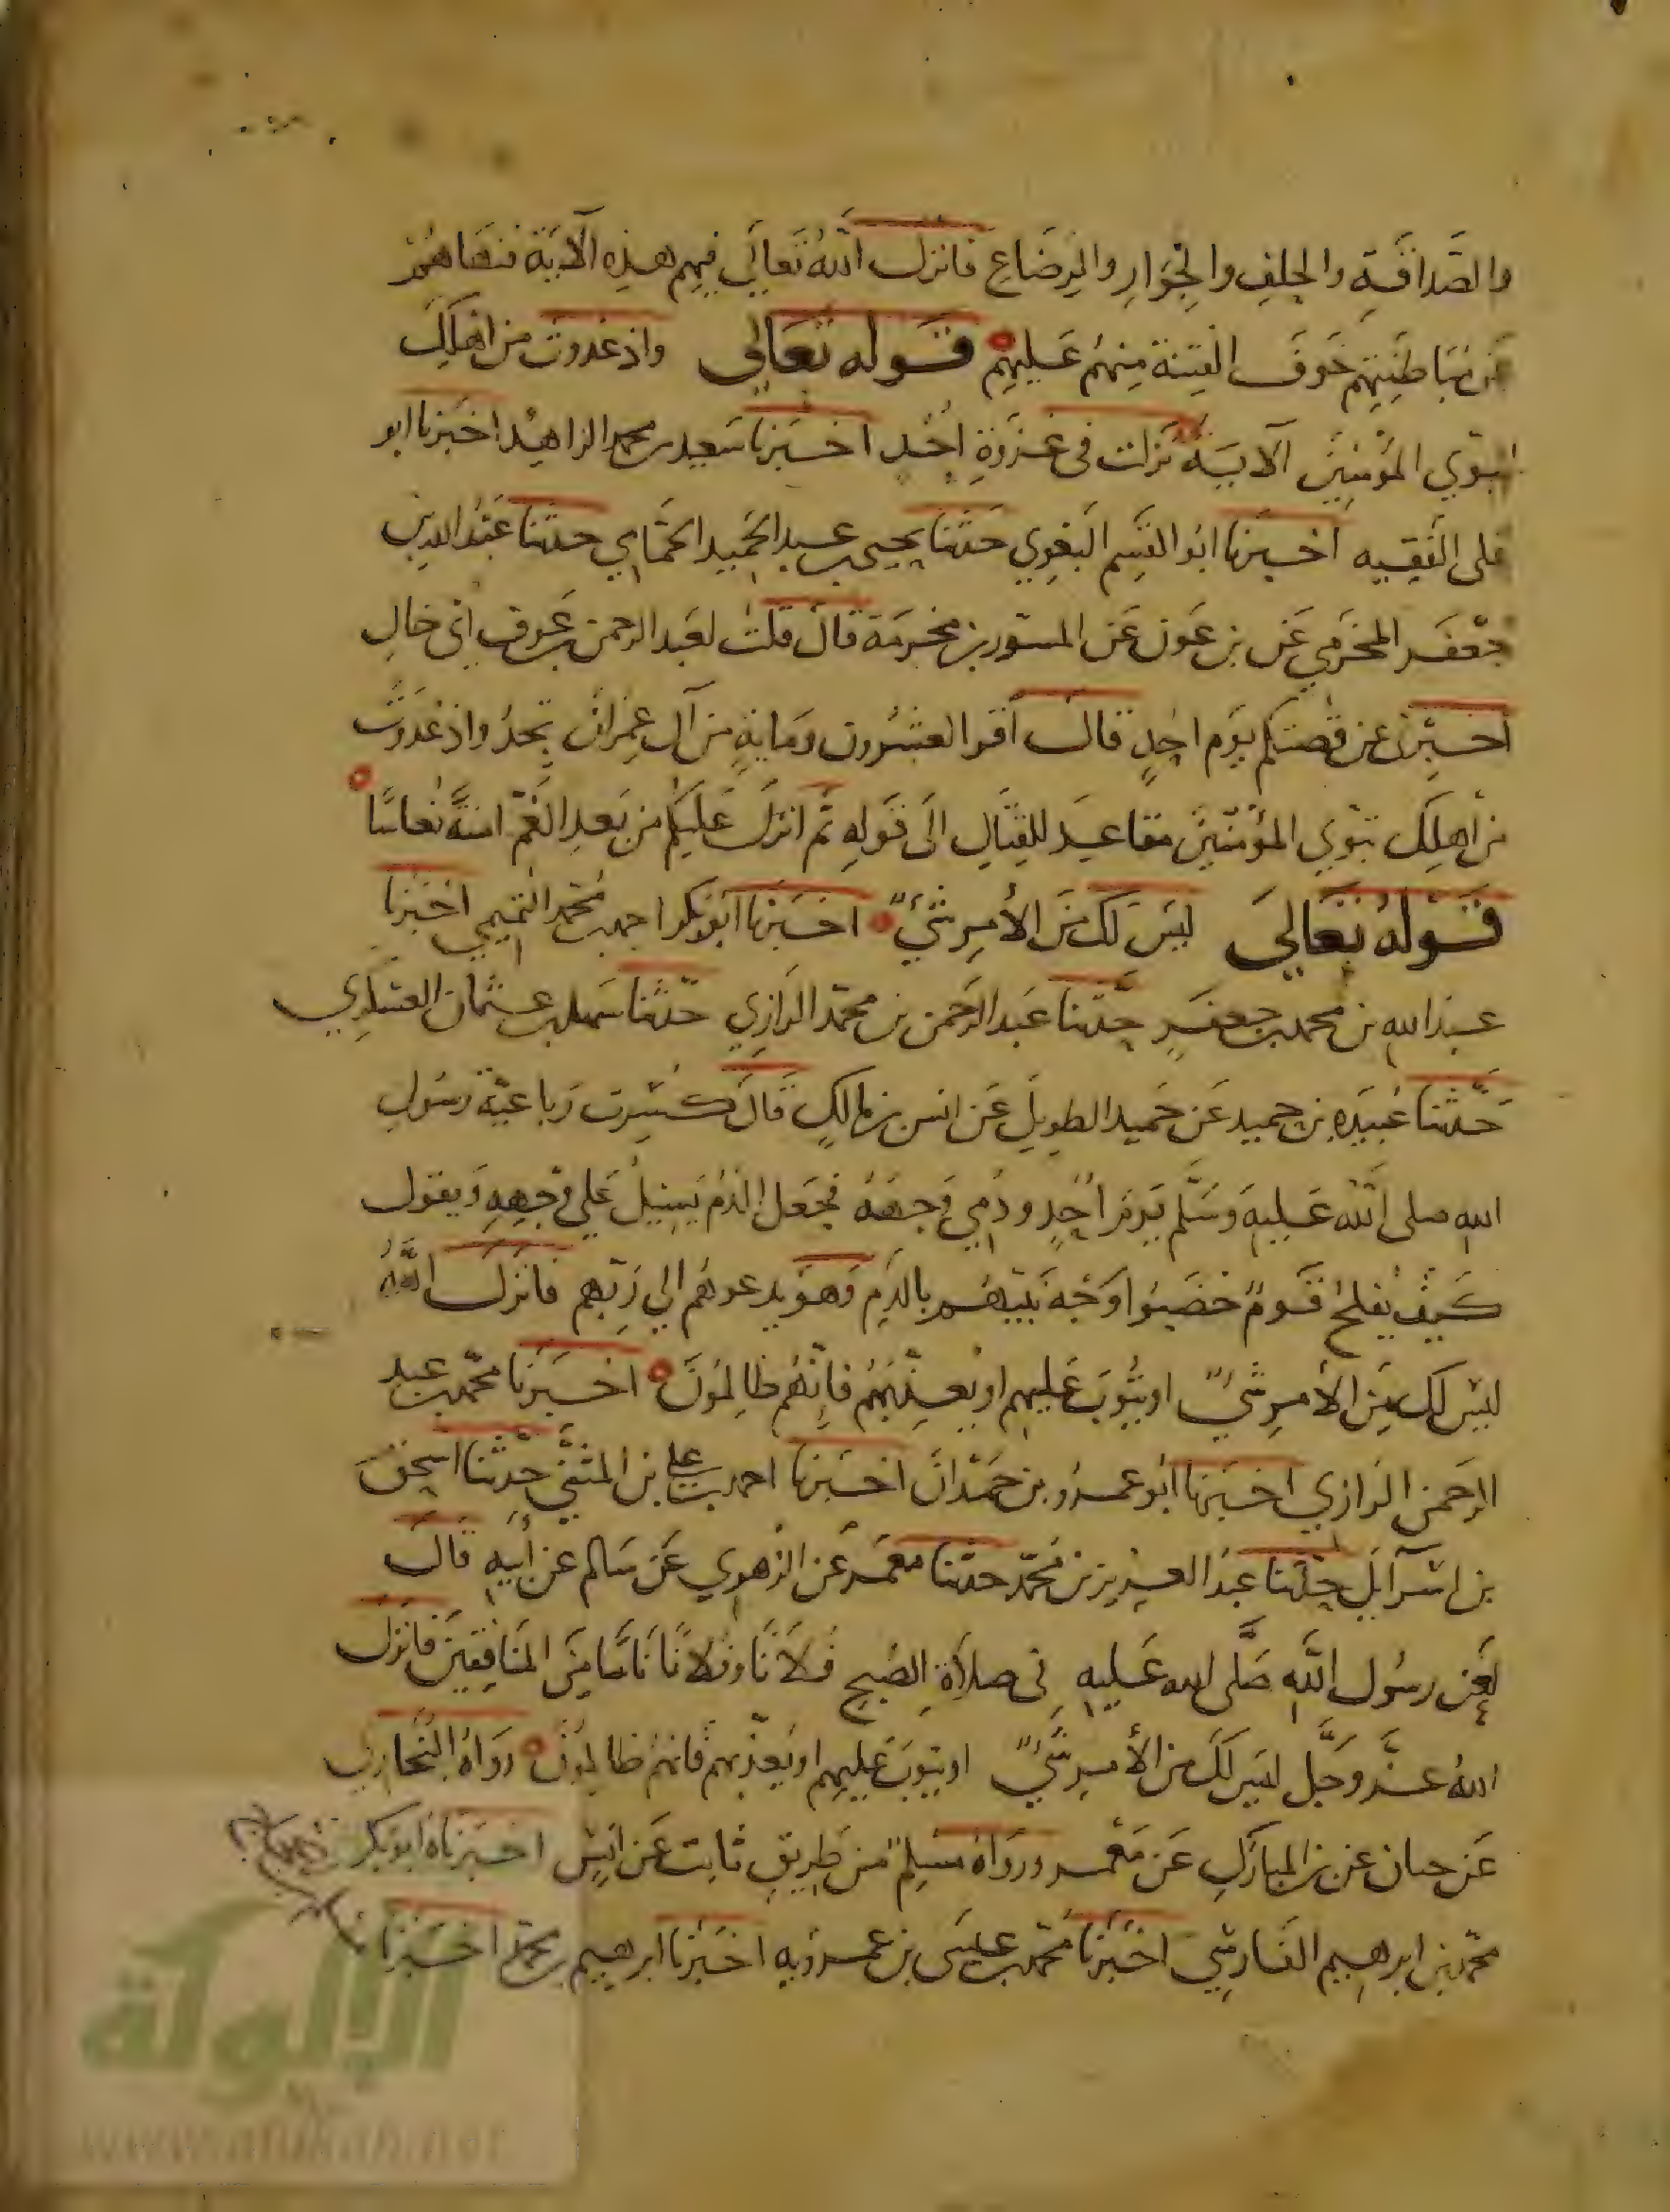 والصَّدَاقَةِ والحِلفِ والجِوَارِ والرِضَاعِ فانزل اللهُ تَعَالَى فيهم هذِهِ الآيَةَ فنهاهُمْ
عن مُبَاطَنِتِهم خَوفَ الفِتِنة مِنهُم عَلَيهِم قَوله تَعَالى واذ غدوت من اهلك
تبوّي المؤمِنِينَ الآيَة نَزَلت فى غَزوَةِ اُحُدٍ اخبَرنا سَعيد بن محمد الزاهِد اخبَرنا ابو
على الفَقِيه اخبرنا ابُو القسِم البَغوِي حَدثنا يحيى بن عبد الحَمِيد الحَمَّاني حدثنا عَبدُ الله بن
جَعفَر المخرَمي عَن بن عَون عَن المسَوَر بن مخرَمَة قال قلت لعَبد الرحمن بن عَوف اى خَالِ
اخبِرنى عن قصّتكم يَوم احُدٍ قال اقَرا العشرون ومَايةٍ من آلِ عِمرَان تجدُ واذ غدَوتَ
من اهلِكَ تبوّي المؤمِنينَ مقاعِدَ للقِتَالِ الَى قَولِهِ ثم انزلَ عَلَيكم من بَعدِ الغَمّ امنَةً نُعاسًا
قَوله تَعَالىَ لَيسَ لكَ منَ الأمرِ شَيٌ اخبَرنا ابُو بكر احمد بن محمد التميمي اخبَرنا
عبدُ اللهِ بن محمد بن جعفَرٍ حدّثنا عَبد الرحمن بن محمّد الرَازي حدّثنا سَهل بن عثمان العسكري
حَدَّثنا عُبَيدَه بن حميد عَن حَميد الطويلِ عَن انس بن مالكٍ قالَ كُسِرت رَباعيَة رسُول
الله صلى اللهُ عَليهِ وَسَلَّم يَومَ اُحُدٍ ودُمِي وَجهَهُ فجَعَل الدَمُ يَسِيلُ عَلى وَجهِهِ وَيقول
كَيفَ يُفلحُ قَومٌ خضَبُوا وَجهَ نَبِيّهم بالدَمِ وَهوَ يدعوهُم الي رَبّهم فانزلَ اللهُ
ليسَ لكَ مِنَ الأمرِ شَيٌ اويَتُوبَ عَليهِم اويُعذّبَهُم فانّهُم ظالمُونَ اخبَرنا محمّد بن عبد
الرحمن الرَازي اخبَرنا ابُو عمرو بن حَمدَانَ اخبَرنا احمد بن على بن المثنّي حدّثنا اسحق
بن اسرآيل حدّثنا عبدُ العزيز بن محمّد حدّثنا معمَر عَن الزهري عَن سَالم عن أبيهِ قالَ
لعَن رسُول اللّهِ صَلّى الله عَليهِ فى صلاةِ الصُبحِ فُلانًا وفُلانًا نَاسًا مِنَ المنَافِقِينَ فانزل
اللهُ عَزَّ وجَلَّ ليسَ لكَ من الأمرِ شَيٌ اويتوبَ عليهم اويُعذّبهم فانهُم ظالمُونَ رَواهُ البُخَاري
عَن حبان عن بن المبَارَكِ عَن مَعمر ورَوَاهُ مُسِلم من طرِيقِ ثابت عَن انَسٍ اخبَرنَاه ابُو بكر
محمّد بن ابراهيم الفَارِسي اخبَرنا محمّد بن عيسَى بن عمرويه اخبَرنا ابرهيم بن محمّد اخبَرنا
الألولة
www.alukah.net